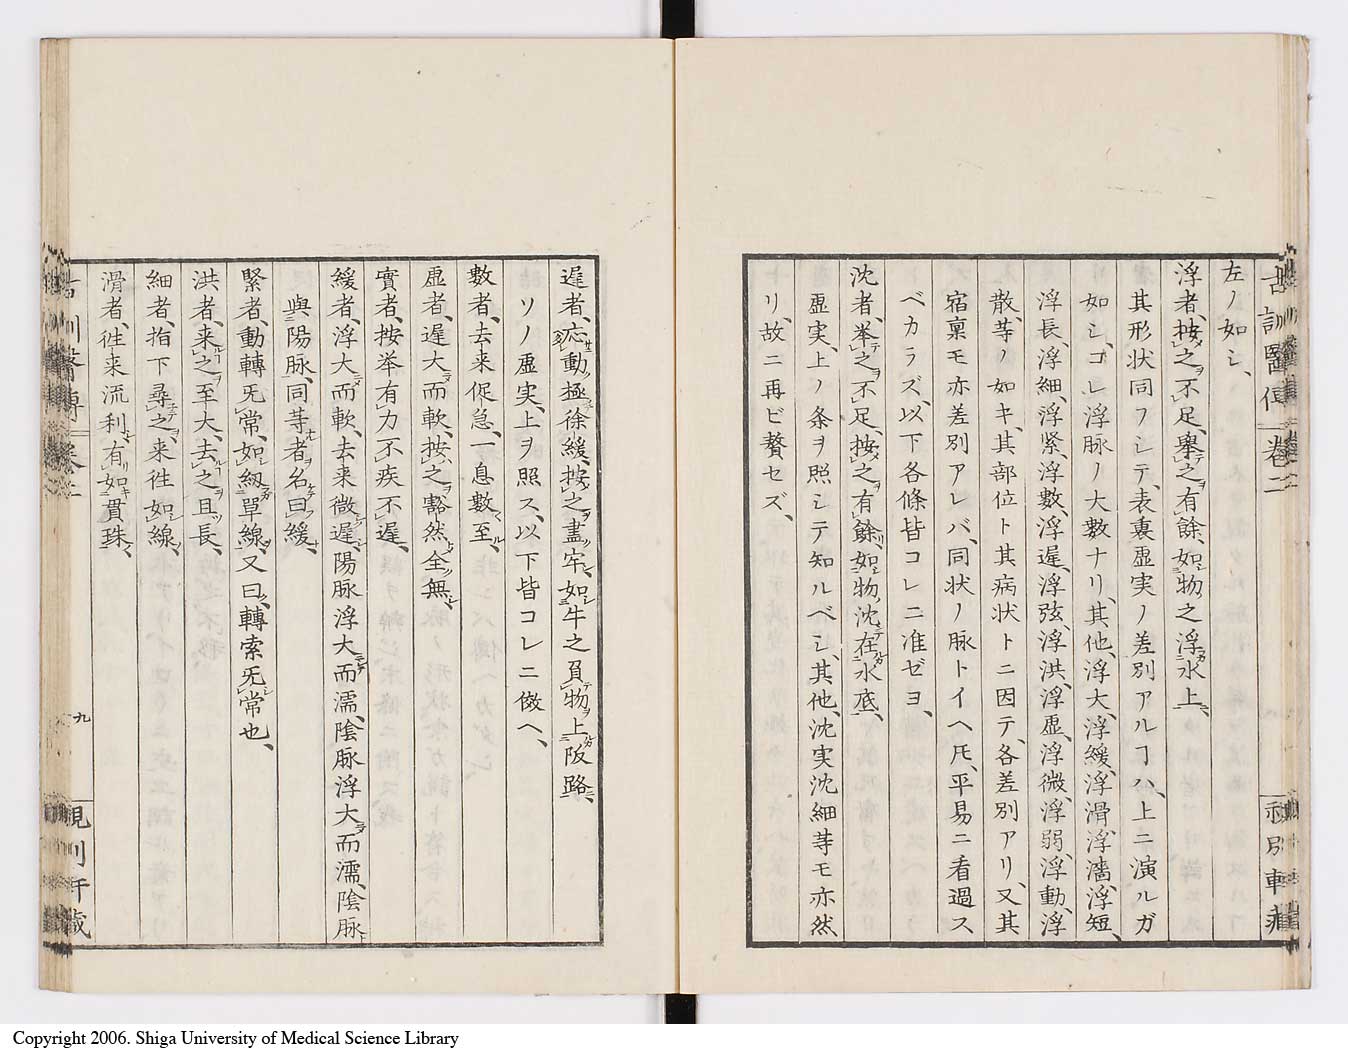 左ノ如シ、
浮者、按之不足、擧之有餘、如物之浮水上、
其形状同フシテ、表裏虚実ノ差別アルヿハ、上ニ演ルガ
如シ、コレ浮脉ノ大數ナリ、其他、浮大、浮緩、浮滑、浮濇、浮短、
浮長、浮細、浮緊、浮數、浮遲、浮弦、浮洪、浮虚、浮微、浮弱、浮動、浮
散、等ノ如キ、其部位ト其病状トニ因テ、各差別アリ、又其
宿稟モ亦差別アレバ、同状ノ脉トイヘ𪜈、平易ニ看過ス
ベカラズ、以下各條皆コレニ准ゼヨ、
沈者、挙之不足、按之有餘、如物沈在水底、
虚実、上ノ条ヲ照シテ知ルベシ、其他、沈実沈細等モ亦然
トリ、故ニ再ビ贅セズ、
遅者、応動極徐緩、按之盡牢、如牛之負物上阪路、
ソノ虚実、上ヲ照ス、以下皆コレニ傚ヘ、
數者、去来促急、一息數至、
虚者、遲大而軟、按之豁然全無、
實者、按挙有力不疾不遲、
緩者、浮大而軟、去来微遲、陽脉浮大而濡、陰脉浮大而濡、陰脉
與陽脉、同等者名曰緩、
緊者、動轉旡常、如紉單線、又曰、轉索旡常也、
洪者、来之至大、去之且長、
細者、指下尋之、来徃如線、
滑者、徃来流利、有如貫珠、
古訓醫傳
卷二
九
Copyright 2006. Shiga University of Medical Science Library